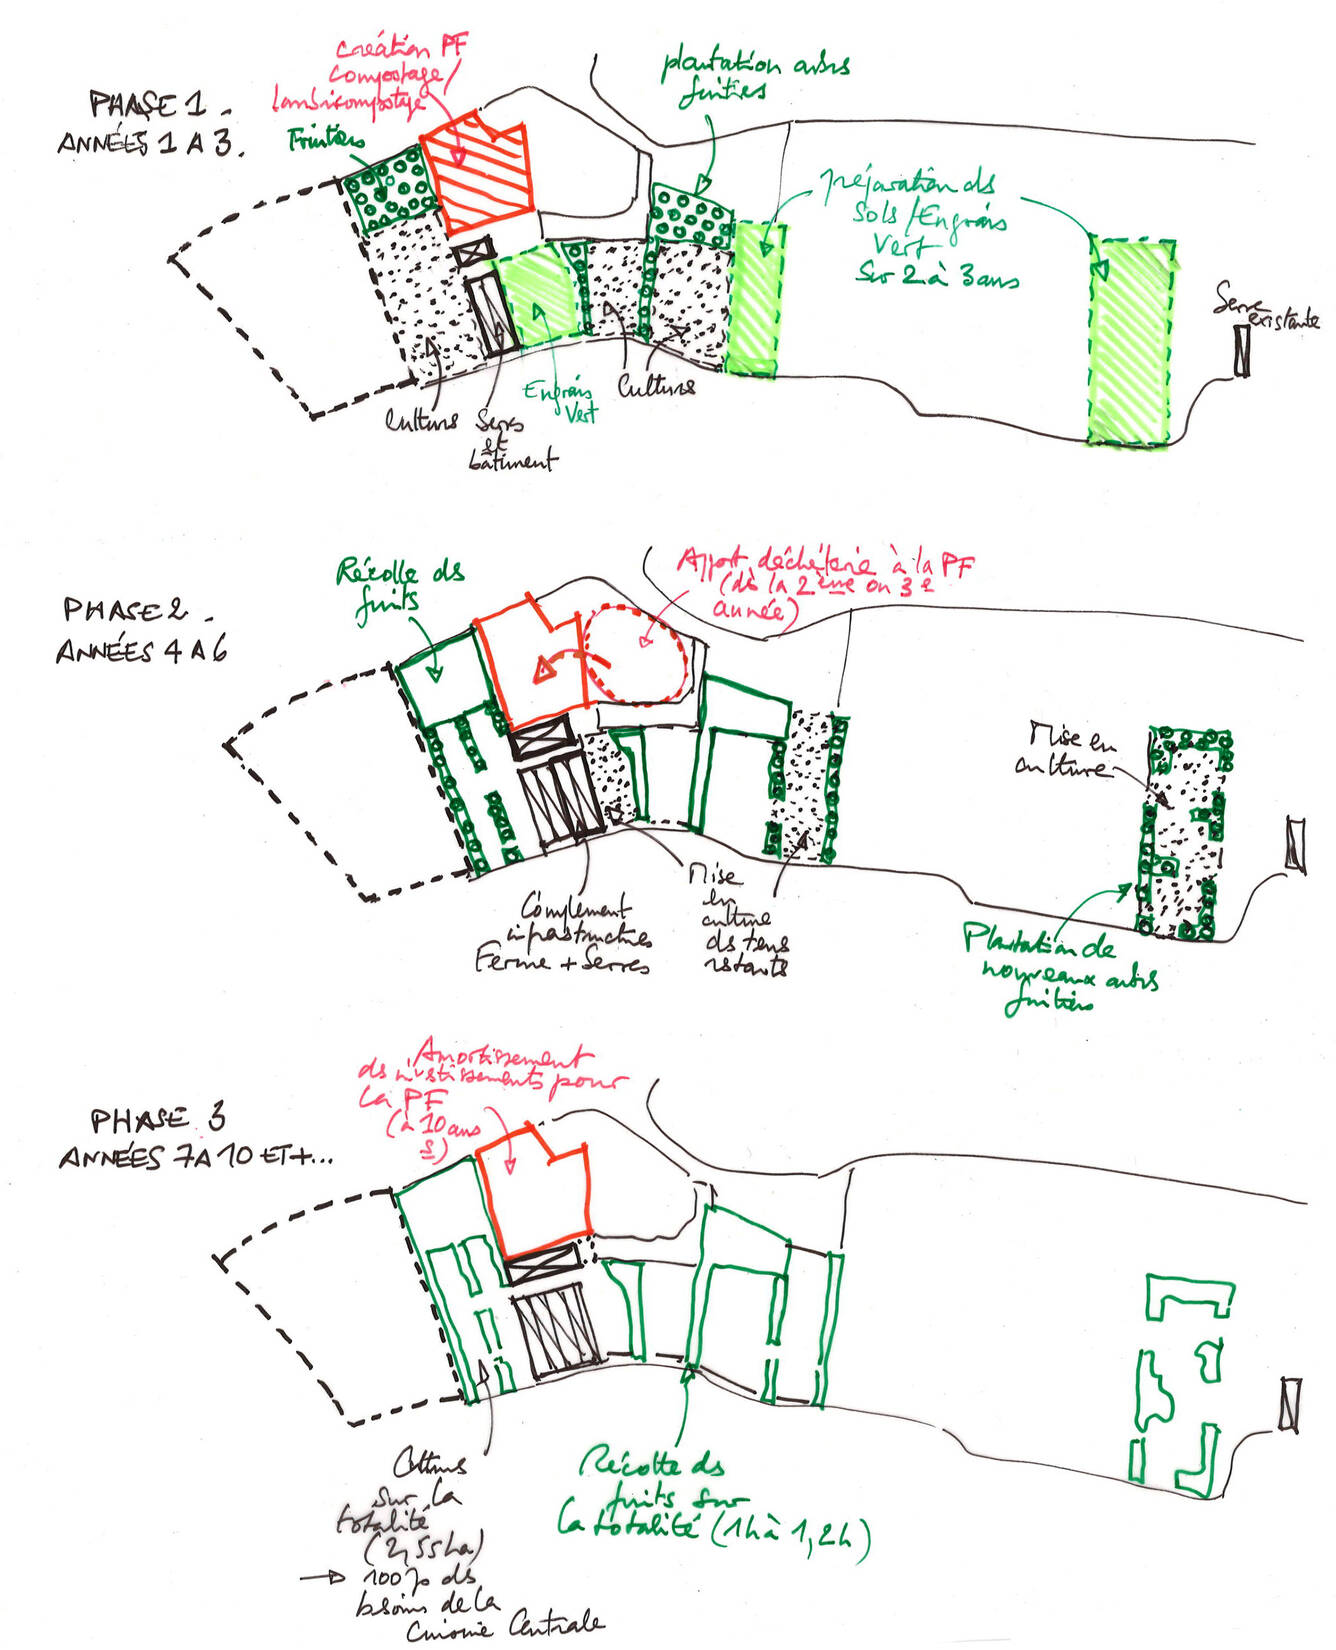 PHASE 1 -
ANNÉES 1 A 3.
création PF
compostage/
lombricompostage
Fruitiers
plantation arbres
fruitiers
préparation des
sols/Engrais
Vert
sur 2 à 3 ans
Serre
existante
Cultures
Serres
et
bâtiment
Engrais
Vert
Cultures
PHASE 2 -
ANNÉES 4 A 6
Récolte des
fruits
Apport déchèterie à la PF
(dès la 2ème ou 3e
année)
Mise en
culture
Complément
infrastructures
Ferme + Serres
Mise
en
culture
des terres
restantes
Plantation de
nouveaux arbres
fruitiers
PHASE 3
ANNÉES 7 A 10 ET +...
Amortissement
des investissements pour
la PF
(à 10 ans
)
Cultures
sur la
totalité
(2,55ha)
→ 100% des
besoins de la
Cuisine Centrale
Récolte des
fruits sur
la totalité (1h à 1,2h)